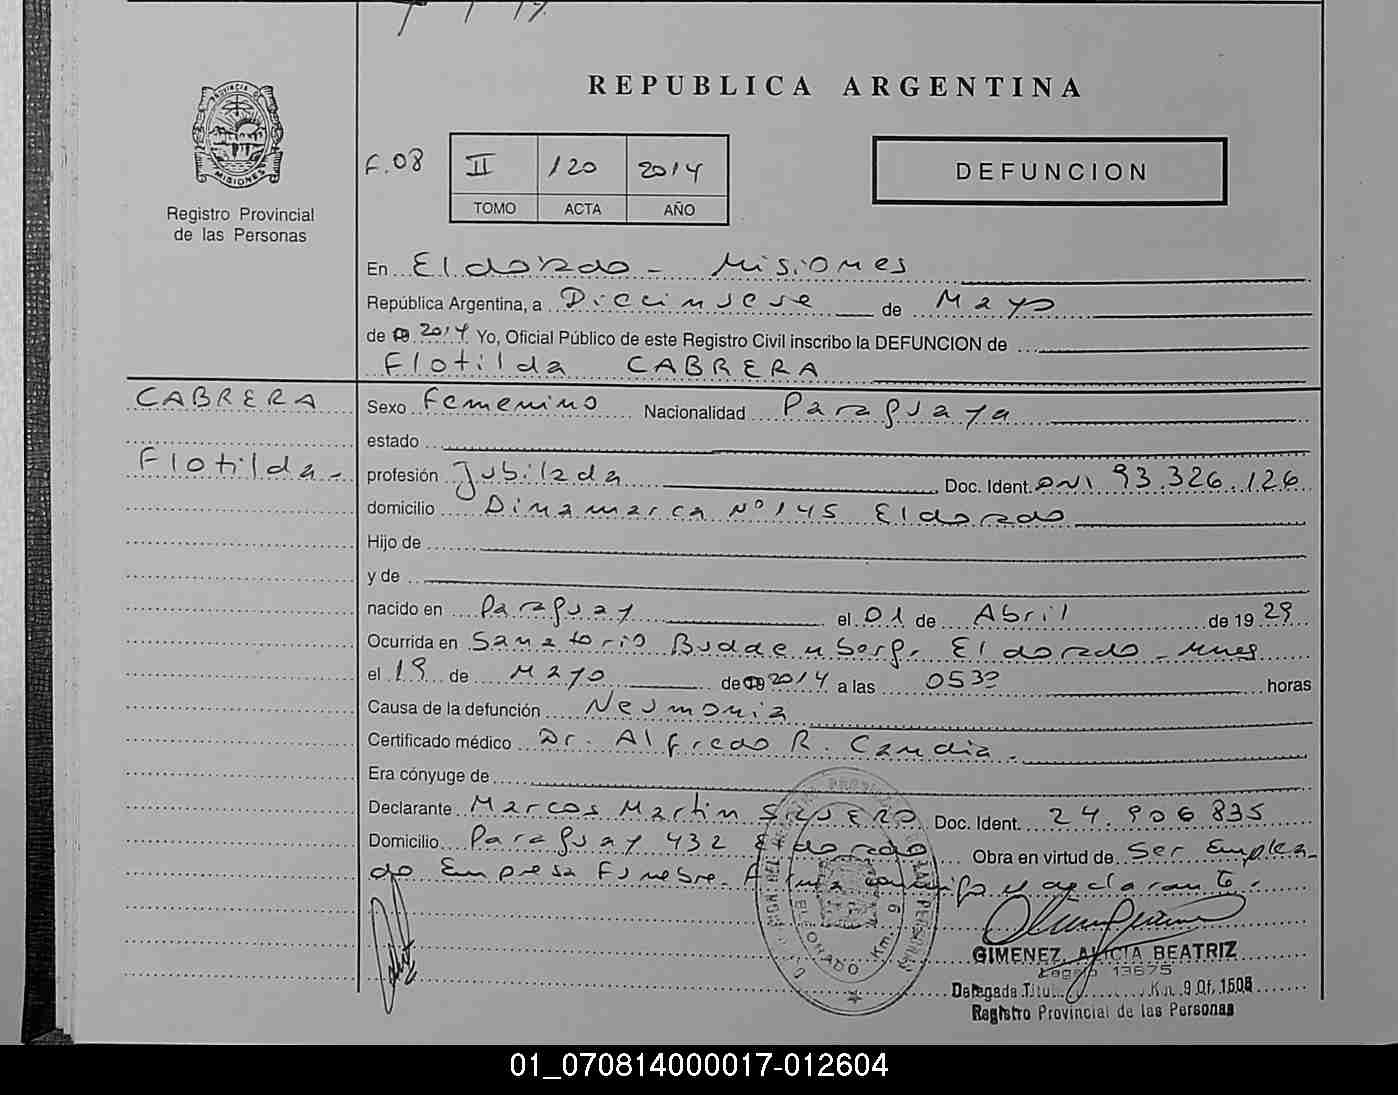 REPUBLICA ARGENTINA
PROVINCIA DE
MISIONES
Registro Provincial
de las Personas
F.08 II 120 2014
TOMO ACTA AÑO
DEFUNCION
En Eldorado - Misiones
República Argentina, a Diecinueve de Mayo
de 2014 Yo, Oficial Público de este Registro Civil inscribo la DEFUNCION de
Flotilda CABRERA
CABRERA
Flotilda -
Sexo Femenino Nacionalidad Paraguaya
estado
profesión Jubilada Doc. Ident. DNI 93.326.126
domicilio Dinamarca Nº 145 Eldorado
Hijo de
y de
nacido en Paraguay el 01 de Abril de 19 29
Ocurrida en Sanatorio Buddenberg. Eldorado - Mnes
el 19 de Mayo de 2014 a las 0530 horas
Causa de la defunción Neumonia
Certificado médico Dr. Alfredo R. Candia.
Era cónyuge de
Declarante Marcos Martin Doc. Ident. 24.906.835
Domicilio Paraguay 432 Eldorado Obra en virtud de Ser Emplea-
do Empresa Funebre. Firma conmigo y declarante.
ELDORADO Km.
GIMENEZ, ALICIA BEATRIZ
Legajo 13675
Delegada Titul. Km. 9 Of. 1508
Registro Provincial de las Personas
01_070814000017-012604